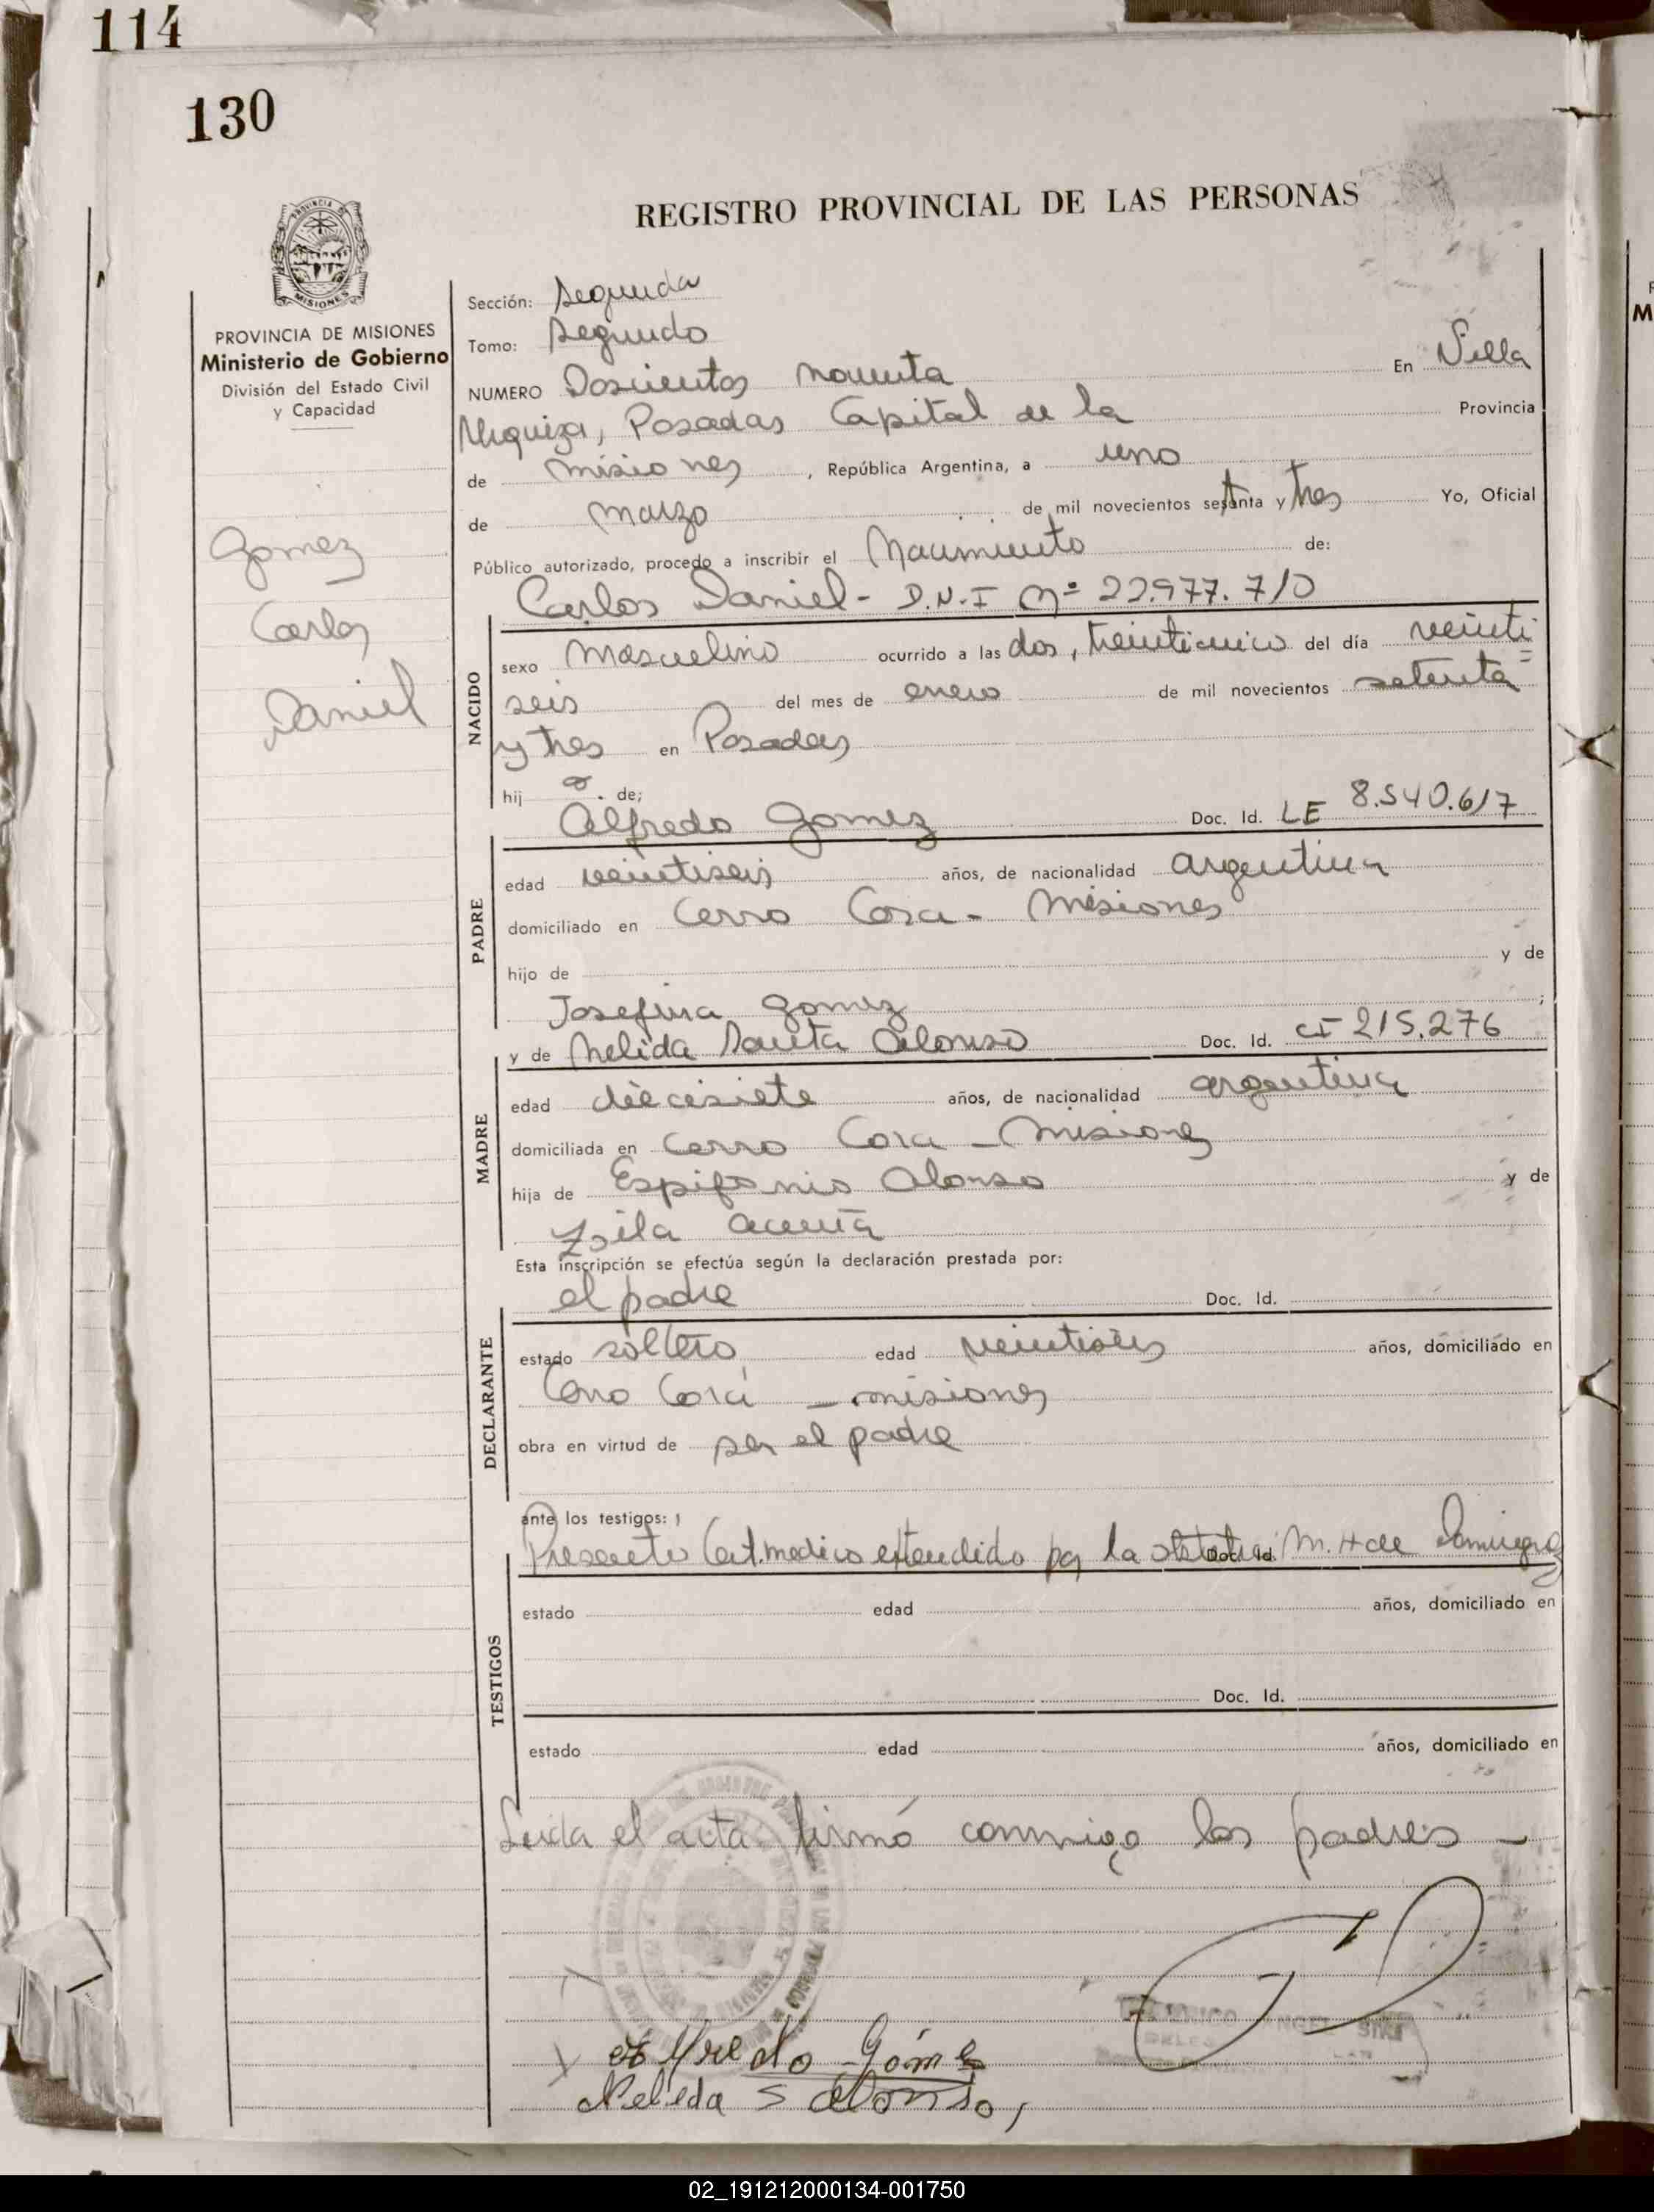 114
130
REGISTRO PROVINCIAL DE LAS PERSONAS
PROVINCIA DE
MISIONES
PROVINCIA DE MISIONES
Ministerio de Gobierno
División del Estado Civil
y Capacidad
Gomez
Carlos
Daniel
Sección: Segunda
Tomo: Segundo
NUMERO Doscientos noventa En Villa
Urquiza, Posadas Capital de la Provincia
de Misiones, República Argentina, a uno
de marzo de mil novecientos setenta y tres Yo, Oficial
Público autorizado, procedo a inscribir el Nacimiento de:
Carlos Daniel - D.N.I Nº 22.977.710
NACIDO
sexo Masculino ocurrido a las dos, treinticinco del día veinti=
seis del mes de enero de mil novecientos setenta
y tres en Posadas
hij o. de;
Alfredo Gomez Doc. Id. LE 8.540.617
PADRE
edad veintiseis años, de nacionalidad argentina
domiciliado en Cerro Cora - Misiones
hijo de y de
Josefina Gomez ;
y de Nelida Santa Alonso Doc. Id. CI 215.276
MADRE
edad diecisiete años, de nacionalidad argentina
domiciliada en Cerro Cora - Misiones
hija de Espifanio Alonso y de
Zoila Acuña
Esta inscripción se efectúa según la declaración prestada por:
el padre Doc. Id.
DECLARANTE
estado soltero edad veintiseis años, domiciliado en
Cerro Corá - misiones
obra en virtud de ser el padre
ante los testigos:
Presento Cert. medico extendido por la obstetra Doc. Id. M. H de Dominguez
TESTIGOS
estado edad años, domiciliado en
Doc. Id.
estado edad años, domiciliado en
Leida el acta firmó conmigo los padres -
Alfredo Gómez
Nelida S Alonso,
02_191212000134-001750